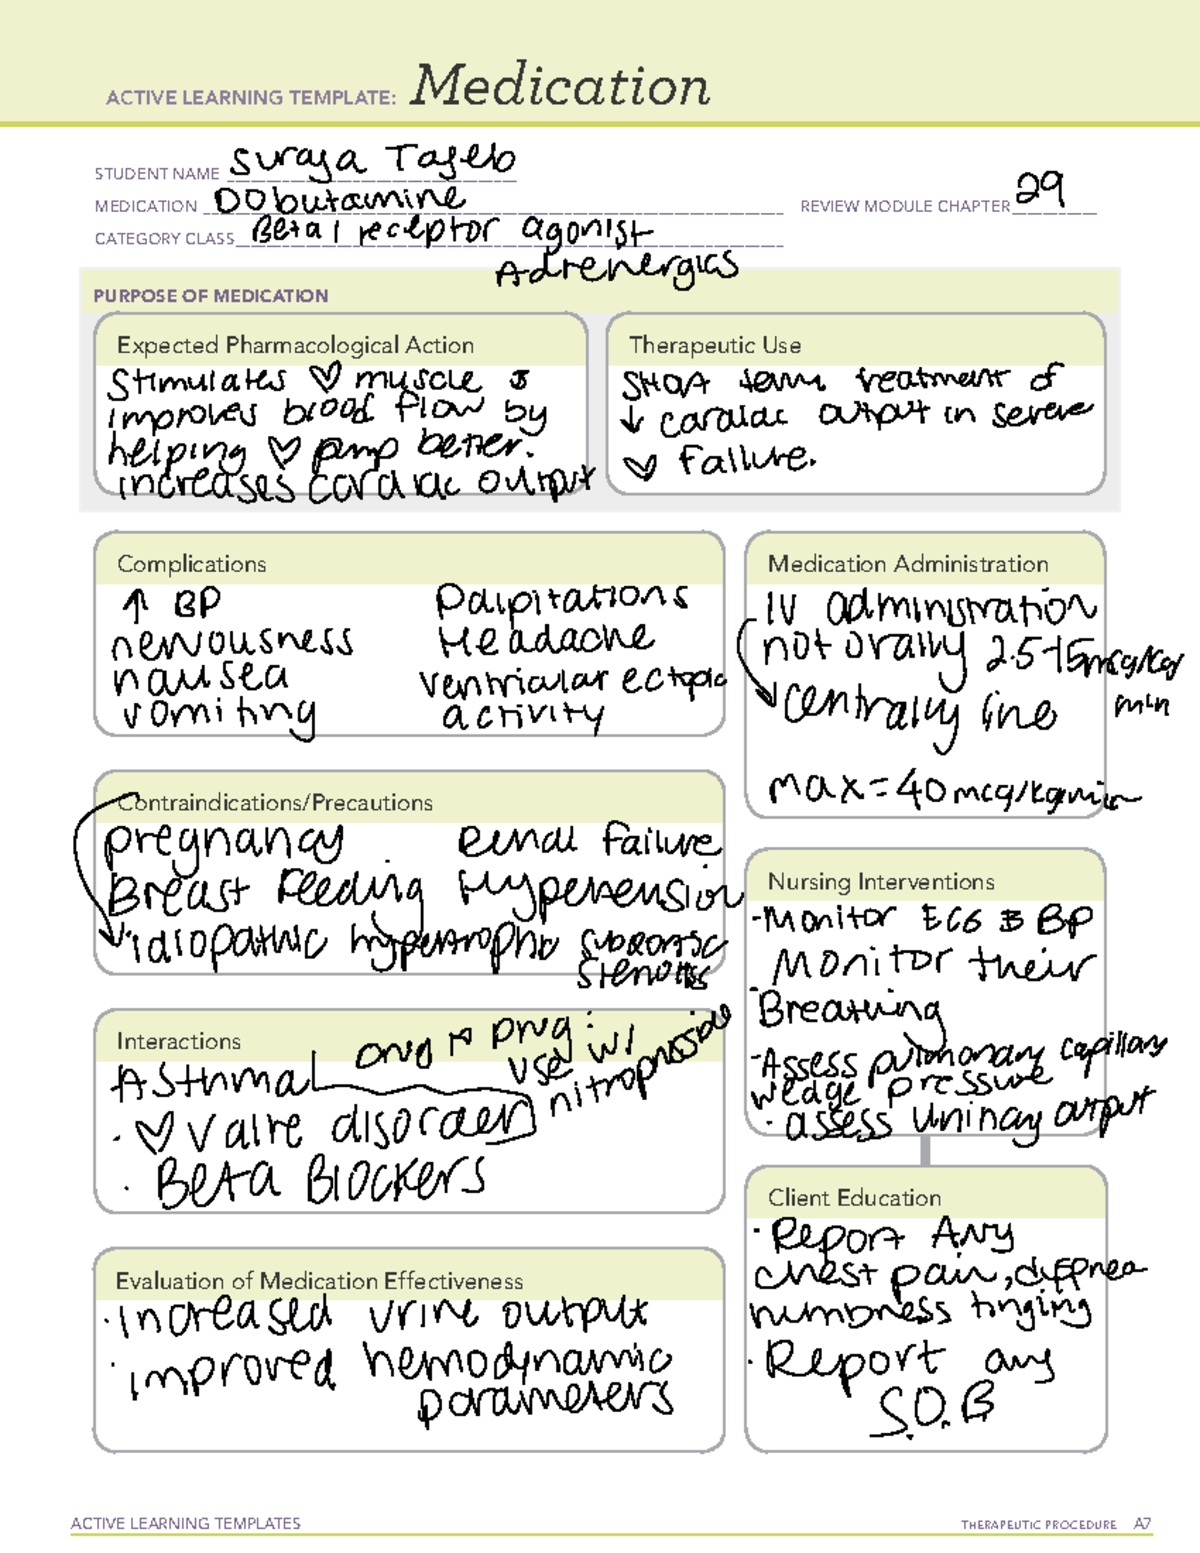 ACTIVE LEARNING TEMPLATE: Medication
STUDENT NAME Suraya Tajelo
MEDICATION DObutamine
REVIEW MODULE CHAPTER 29
CATEGORY CLASS Beta 1 receptor agonist
Adrenergics
PURPOSE OF MEDICATION
Expected Pharmacological Action
Stimulates ♡ muscle &
improves blood flow by
helping ♡ pump better.
increases cardiac output
Therapeutic Use
SHOrt term treatment of
↓ cardiac output in severe
♡ failure.
Complications
↑ BP
nervousness
nausea
vomiting
Palpitations
Headache
ventricular ectopic
activity
Medication Administration
IV administration
not orally 2.5-15mcg/kg/
min
centrally line
max = 40 mcg/kg/min
Contraindications/Precautions
pregnancy
Breast Feeding
Renal Failure
Hypertension
idiopathic hypertrophic subaortic
stenosis
Interactions
drug → Drug:
use w/
nitroprusside
Asthma
· ♡ valve disorder
· Beta Blockers
Nursing Interventions
-Monitor ECG & BP
· Monitor their
Breathing
-Assess pulmonary capillary
wedge pressure
· assess urinay output
Client Education
· Report Any
chest pain,
numbness tinging
· Report any
S.O.B
Evaluation of Medication Effectiveness
· increased urine output
· improved hemodynamic
parameters
ACTIVE LEARNING TEMPLATES
THERAPEUTIC PROCEDURE A7